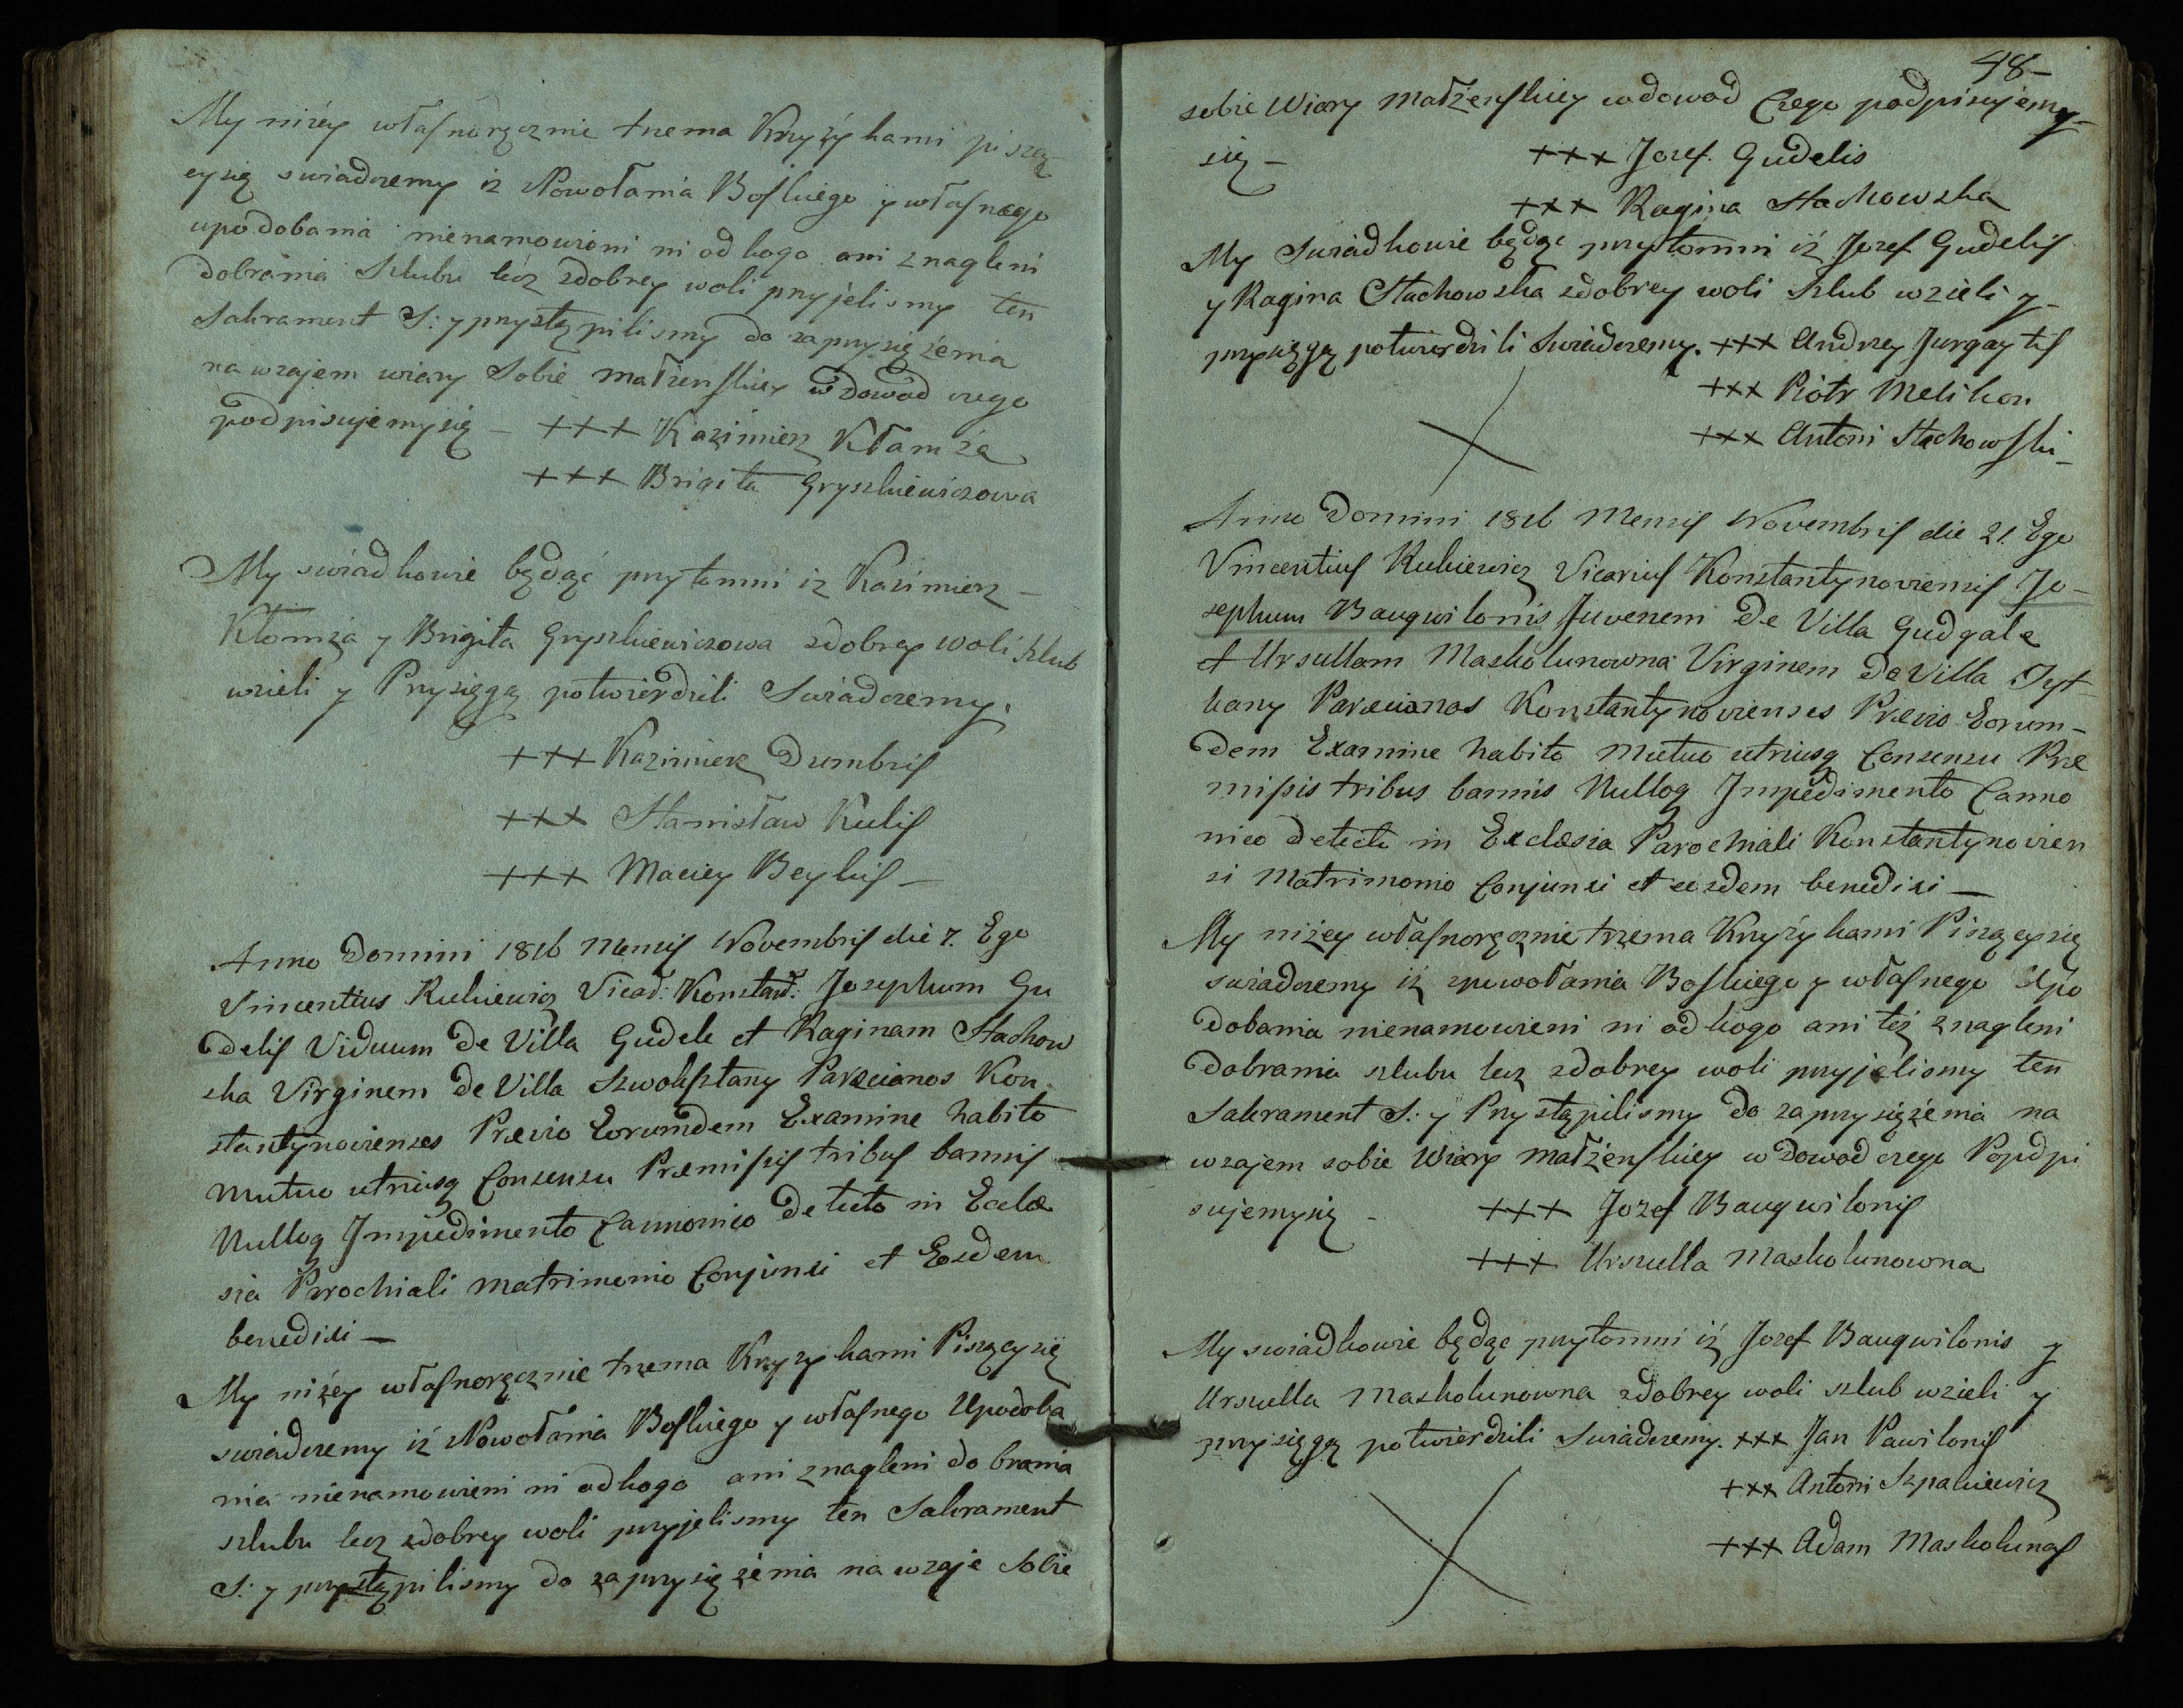 My niżey własnoręcznie trzema Krzyżykami piszą-
cysię swiadczemy iz Powołania Boskiego y własnego
upodobania nienamowieni ni od kogo ani znagleni
dobrania Szlubu lecz zdobrey woli przyjelismy ten
Sakrament S: y przystąpilismy do zaprzysiężenia
nawzajem wiary Sobie małżenskiey w dowod czego
podpisujemysię – +++ Kazimierz Kłamża
+++ Brigita Gryszkiewiczowa
My swiadkowie będąć przytomni iz Kazimierz –
Kłomża y Brigita Gryszkiewiczowa zdobrey woli szlub
wzieli y Przysięgą potwierdzili Swiadczemy.
+++ Kazimierz Dumbris
+++ Stanisław Kulis
+++ Maciey Beykis –
Anno Domini 1816 Mensis Novembris die 7. Ego
Vincentius Rukiewicz Vicar: Konstant: Josephum Gu
delis Viduum De Villa Gudele et Raginam Stachow
ska Virginem De Villa Szwoksztany Parecianos Kon
stantynovienses Prævio Eorumdem Examine habito
Mutuo utriusq Consensu Præmissis tribus bannis
Nulloq Impedimento Cannonico Detecto in Eccle
sia Parochiali Matrimonio Conjunxi et Eosdem
benedixi –
My niżey własnoręcznie trzema Krzyżykami Piszącysię
swiadczemy iż Powołania Boskiego y własnego Upodoba
nia nienamowieni ni odkogo ani znagleni do brania
szlubu lecz zdobrey woli przyjelismy ten Sakrament
S: y przystąpilismy do zaprzysiężenia na wzaje Sobie
48–
sobie Wiary Małżenskiey wdowod Czego podpisujemy–
się – +++ Jozef Gudelis
+++ Ragina Stachowska
My Swiadkowie będąc przytomni iż Jozef Gudelis
y Ragina Stachowska zdobrey woli Szlub wzieli y–
przysięgą potwierdzili Swiadczemy. +++ Andrzey Jurgaytis
+++ Piotr Melikon
+++ Antoni Stachowski–
Anno Domini 1816 Mensis Novembris die 21. Ego
Vincentius Rukiewicz Vicarius Konstantynoviensis Jo–
sephum Baugwilonis Juvenem De Villa Gudgale
et Ursullam Maskolunowna Virginem De Villa Jyt
kany Parecianos Konstantynovienses Prævio Eorum–
dem Examine habito Mutuo utriusq Consensu Præ
missis tribus bannis Nulloq Impedimento Canno
nico detecto in Ecclesia Parochiali Konstantynovien
si Matrimonio Conjunxi et eosdem benedixi –
My niżey własnoręcznie trzema Krzyżykami Piszącysię
swiadczemy iż zpowołania Boskiego y własnego Upo
dobania nienamowieni ni od kogo ani też znagleni
Dobrania szlubu lecz zdobrey woli przyjelismy ten
Sakrament S: y Przystąpilismy do zaprzysiężenia na
wzajem sobie Wiary Małżenskiey w Dowod czego Popdpi
sujemysię – +++ Jozef Baugwilonis
+++ Urszulla Maskolunowna
My swiadkowie będąc przytomni iż Jozef Baugwilonis y
Urszulla Maskolunowna zdobrey woli szlub wzieli y
przysięgą potwierdzili Swiadczemy. +++ Jan Pawilonis
+++ Antoni Szpakiewicz
+++ Adam Maskolunas